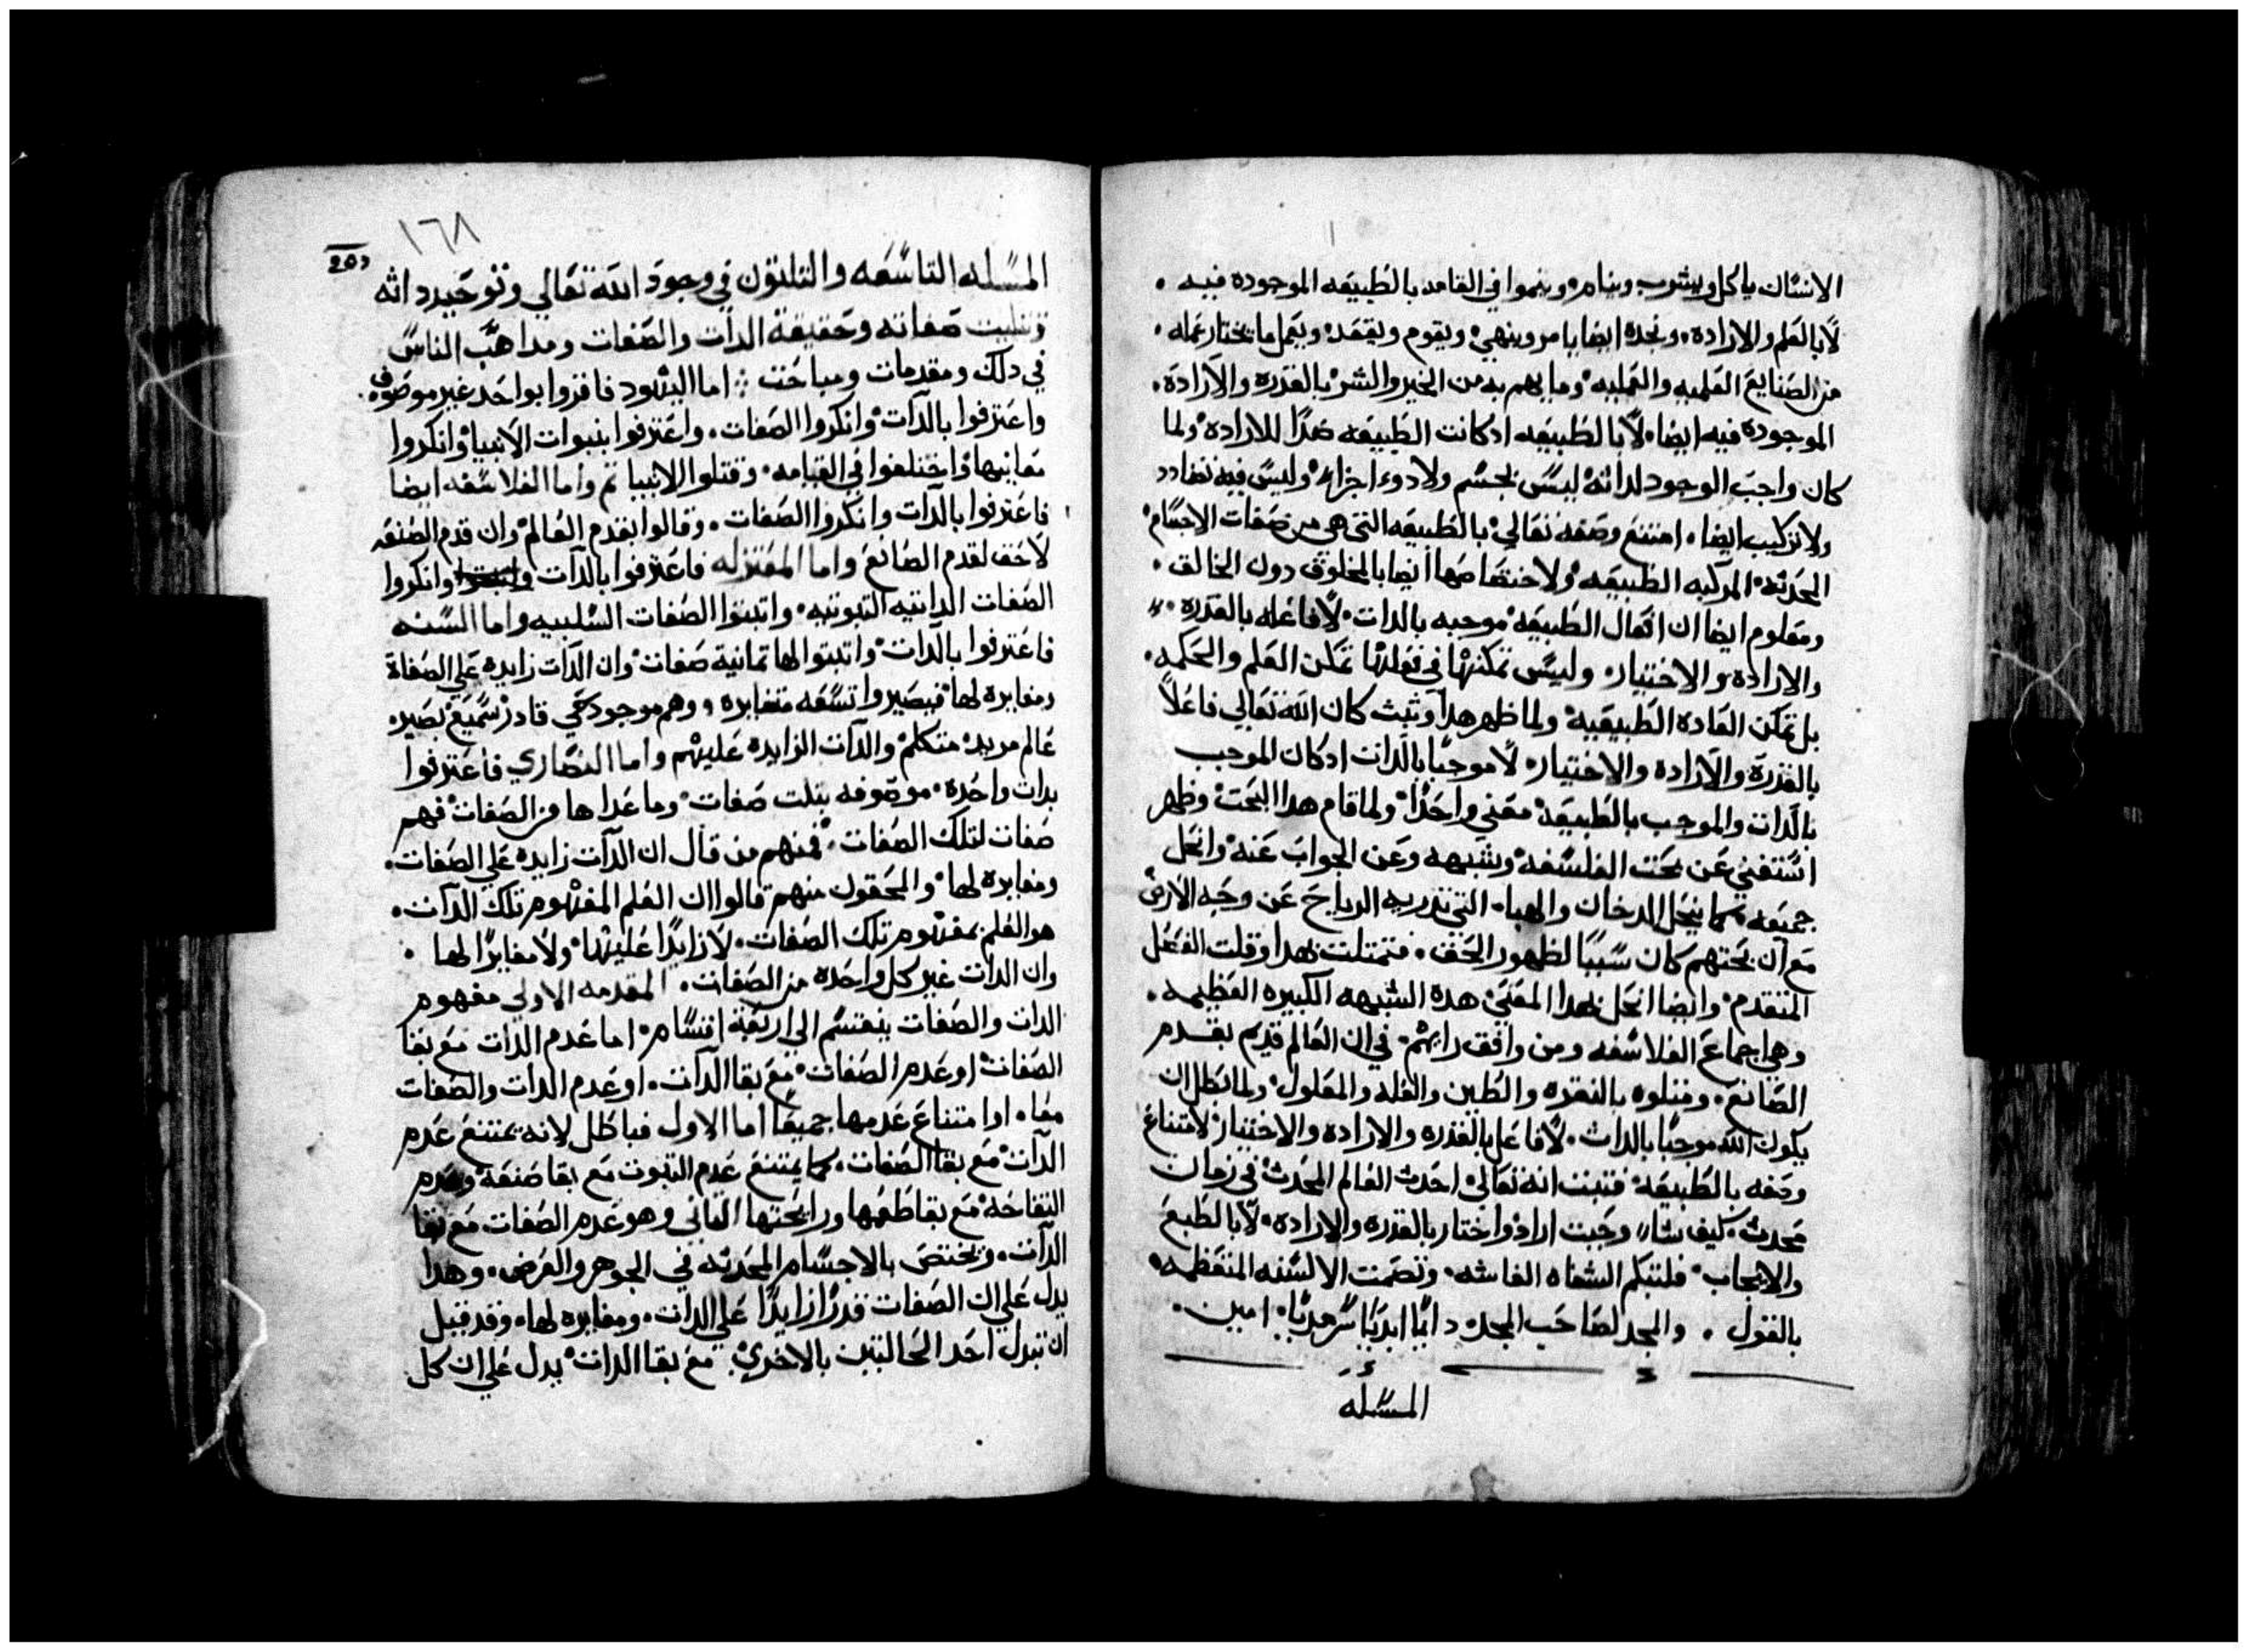 الانسان ياكل ويشرب وينام وينموا في القامه بالطبيعه الموجوده فيه .
لا بالعلم والاراده . ونجده ايضا يامر وينهي ويقوم ويقعد ويعمل ما يختار عمله .
من الصنايع العلميه والعمليه وما يهم به من الخير والشر بالقدره والاراده .
الموجوده فيه ايضا لا بالطبيعه ادكانت الطبيعه ضدا للاراده ولما
كان واجب الوجود لداته ليس بجسم ولا دو اجزاء وليس فيه تضادد
ولا تركيب ايضا . امتنع وصفه تعالي بالطبيعه التي هي من صفات الاجسام
المحدثه المركبه الطبيعه ولاختصاصها ايضا بالمخلوق دون الخالق .
ومعلوم ايضا ان افعال الطبيعه موجبه بالدات . لا فاعله بالقدره .
والاراده والاختيار . وليس تمكنها في فعلها تمكن العلم والحكمه .
بل تمكن العاده الطبيعيه ولما ظهر هدا وتبث كان الله تعالي فاعلاً
بالقدره والاراده والاختيار . لا موجبًا بالدات ادكان الموجب
بالدات والموجب بالطبيعه معني واحدًا ولما قام هدا البحت وظهر
استغني عن بحت الفلسفه وشبهه وعن الجواب عنه وانحل
جميعه كما ينحل الدخان والهباء التي تدريه الرياح عن وجه الارض
مع ان بحتهم كان سببًا لظهور الحق . فتمتلت بهدا وقلت الفصل
المتقدم وايضا انحل بهدا المعني هده الشبهه الكبيره العظيمه .
وهي اجماع الفلاسفه ومن وافق رايهم . في ان العالم قديم بقدم
الصانع . ومتلوه بالنقره والطين والعله والمعلول ولما بطل ان
يكون الله موجبًا بالدات . لا فاعل بالقدره والاراده والاختيار لامتناع
وصفه بالطبيعه فتبت انه تعالي احدت العالم المحدث في زمان
محدث . كيف شاء وحيت اراد واختار بالقدره والاراده . لا بالطبع
والايجاب . فلتبكم الشفاه الغاشه . وتصمت الالسنه المتعظمه .
بالقول . والمجد لصاحب المجد دايمًا ابديًا سرمديًا . امين .
المسئله
١٦٨
المسئله التاسعه والتلتون في وجود الله تعالي وتوحيد داته
وتتليت صفاته وحقيقة الدات والصفات ومداهب الناس
في دلك ومقدمات ومباحت اما اليهود فاقروا بواحد غير موصوف .
واعترفوا بالدات وانكروا الصفات . واعترفوا بنبوات الانبيا وانكروا
معانيها واختلفوا في القيامه . وقتلوا الانبيا تم واما الفلاسفه ايضا
فاعترفوا بالدات وانكروا الصفات . وقالوا بقدم العالم وان قدم الصنعه
لاحق لقدم الصانع واما المعتزله فاعترفوا بالدات وانكروا
الصفات الداتيه التبوتيه . واتبتوا الصفات السلبيه واما السنه
فاعترفوا بالدات واتبتوا لها تمانية صفات وان الدات زايده علي الصفاة
ومغايره لها فيصيروا تسعه متغايره وهم موجود حي قادر سميع بصير
عالم مريد متكلم والدات الزايده عليهم واما النصاري فاعترفوا
بدات واحده . موصوفه بتلت صفات وما عداها من الصفات فهم
صفات لتلك الصفات . فمنهم من قال ان الدات زايده علي الصفات .
ومغايره لها والمحقون منهم قالوا ان العلم المفهوم تلك الدات .
هو العلم بمفهوم تلك الصفات . لا زايدًا عليها ولا مغايرًا لها .
وان الدات غير كل واحده من الصفات . المقدمه الاولي مفهوم
الدات والصفات ينقسم الي اربعة اقسام . اما عدم الدات مع بقا
الصفات اوعدم الصفات مع بقا الدات . اوعدم الدات والصفات
معًا . او امتناع عدمها جميعًا اما الاول فباطل لانه يمتنع عدم
الدات مع بقا الصفات . كما يمتنع عدم التبوت مع بقا صنعة وعدم
التفاحه مع بقا طعمها ورايحتها التاني وهو عدم الصفات مع بقا
الدات . ويختص بالاجسام المحدثه في الجوهر والعرض . وهدا
يدل علي ان الصفات قدرًا زايدًا علي الدات . ومغايره لها . وقد قيل
ان تبدل احد الحالتين بالاخري مع بقا الدات يدل علي ان كل